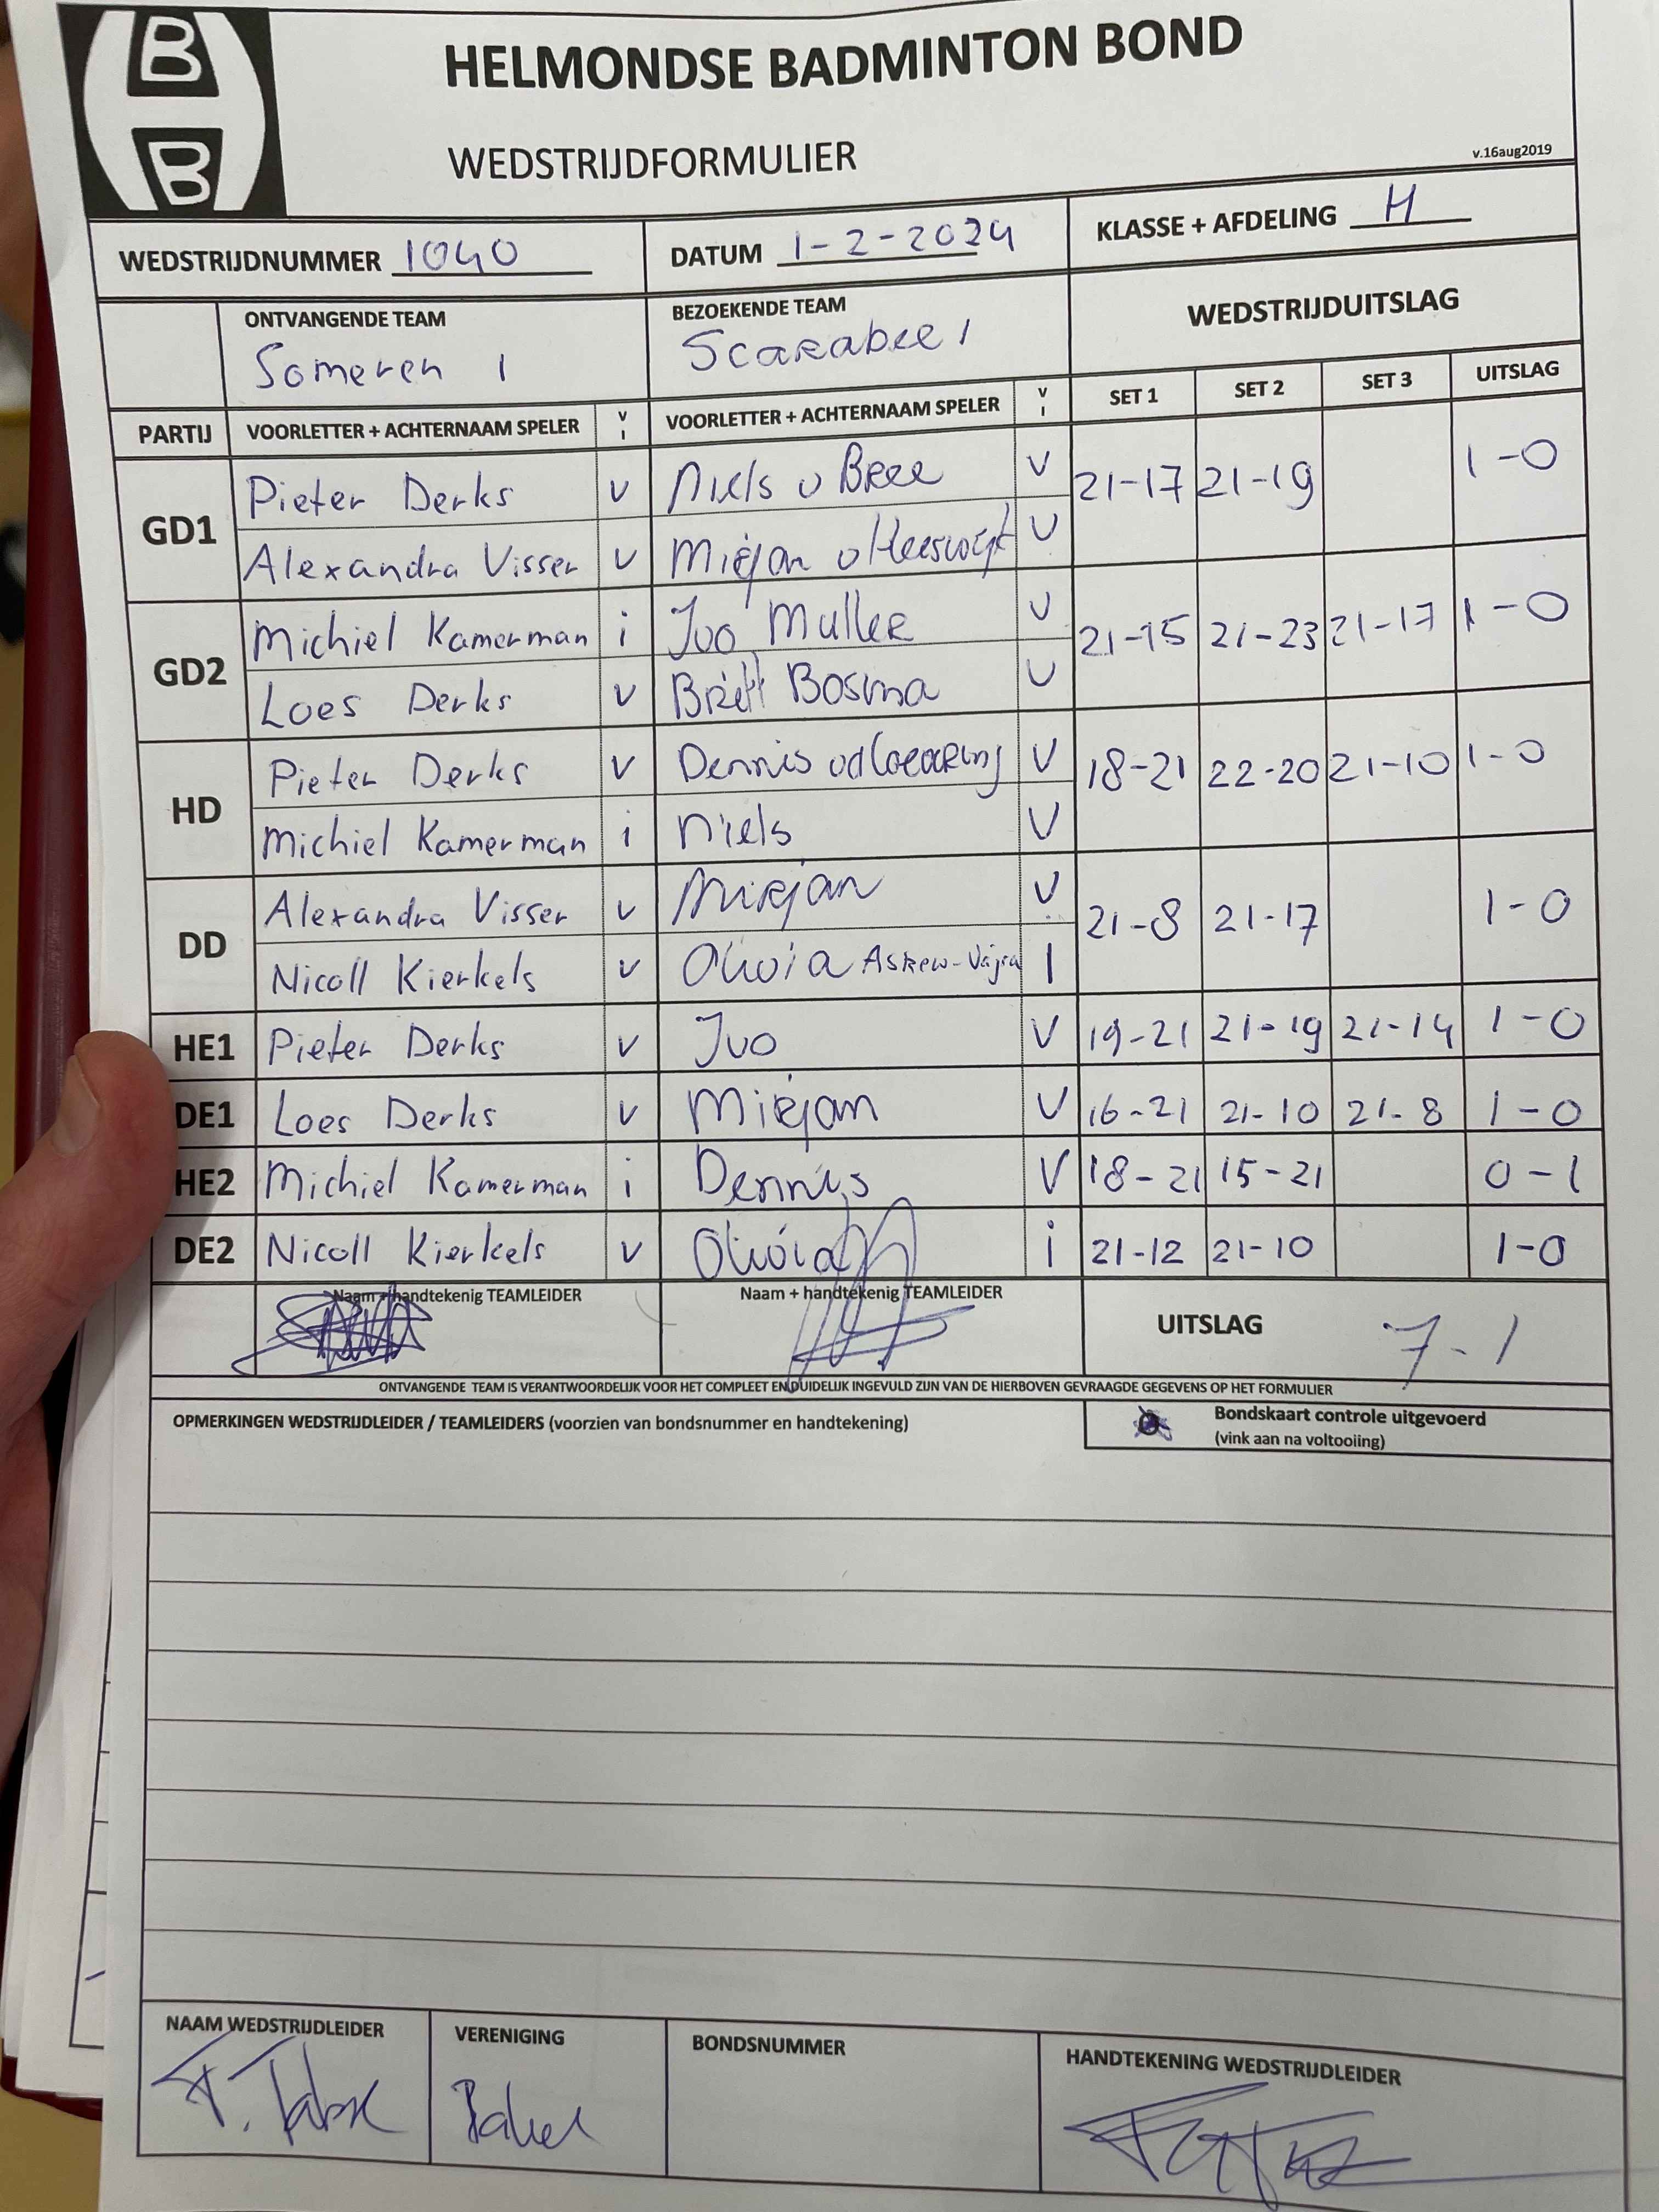 B
B
HELMONDSE BADMINTON BOND
WEDSTRIJDFORMULIER
v.16aug2019
WEDSTRIJDNUMMER 1040 DATUM 1-2-2024 KLASSE + AFDELING H
ONTVANGENDE TEAM BEZOEKENDE TEAM WEDSTRIJDUITSLAG
Someren 1 Scarabee 1
PARTIJ VOORLETTER + ACHTERNAAM SPELER V I VOORLETTER + ACHTERNAAM SPELER V I SET 1 SET 2 SET 3 UITSLAG
GD1 Pieter Derks v Niels v Bree v 21-17 21-19 1-0
Alexandra Visser v Mirjan v
GD2 Michiel Kamerman i Ivo Muller v 21-15 21-23 21-17 1-0
Loes Derks v Britt Bosma v
HD Pieter Derks v Dennis V 18-21 22-20 21-10 1-0
Michiel Kamerman i Niels V
DD Alexandra Visser v Mirjan V 21-8 21-17 1-0
Nicoll Kierkels v Olivia Askew- I
HE1 Pieter Derks v Ivo V 19-21 21-19 21-14 1-0
DE1 Loes Derks v Mirjam V 16-21 21-10 21-8 1-0
HE2 Michiel Kamerman i Dennis V 18-21 15-21 0-1
DE2 Nicoll Kierkels v Olivia i 21-12 21-10 1-0
Naam + handtekenig TEAMLEIDER Naam + handtekenig TEAMLEIDER UITSLAG 7-1
ONTVANGENDE TEAM IS VERANTWOORDELIJK VOOR HET COMPLEET EN DUIDELIJK INGEVULD ZIJN VAN DE HIERBOVEN GEVRAAGDE GEGEVENS OP HET FORMULIER
OPMERKINGEN WEDSTRIJDLEIDER / TEAMLEIDERS (voorzien van bondsnummer en handtekening) Bondskaart controle uitgevoerd
(vink aan na voltooiing)
NAAM WEDSTRIJDLEIDER VERENIGING BONDSNUMMER HANDTEKENING WEDSTRIJDLEIDER